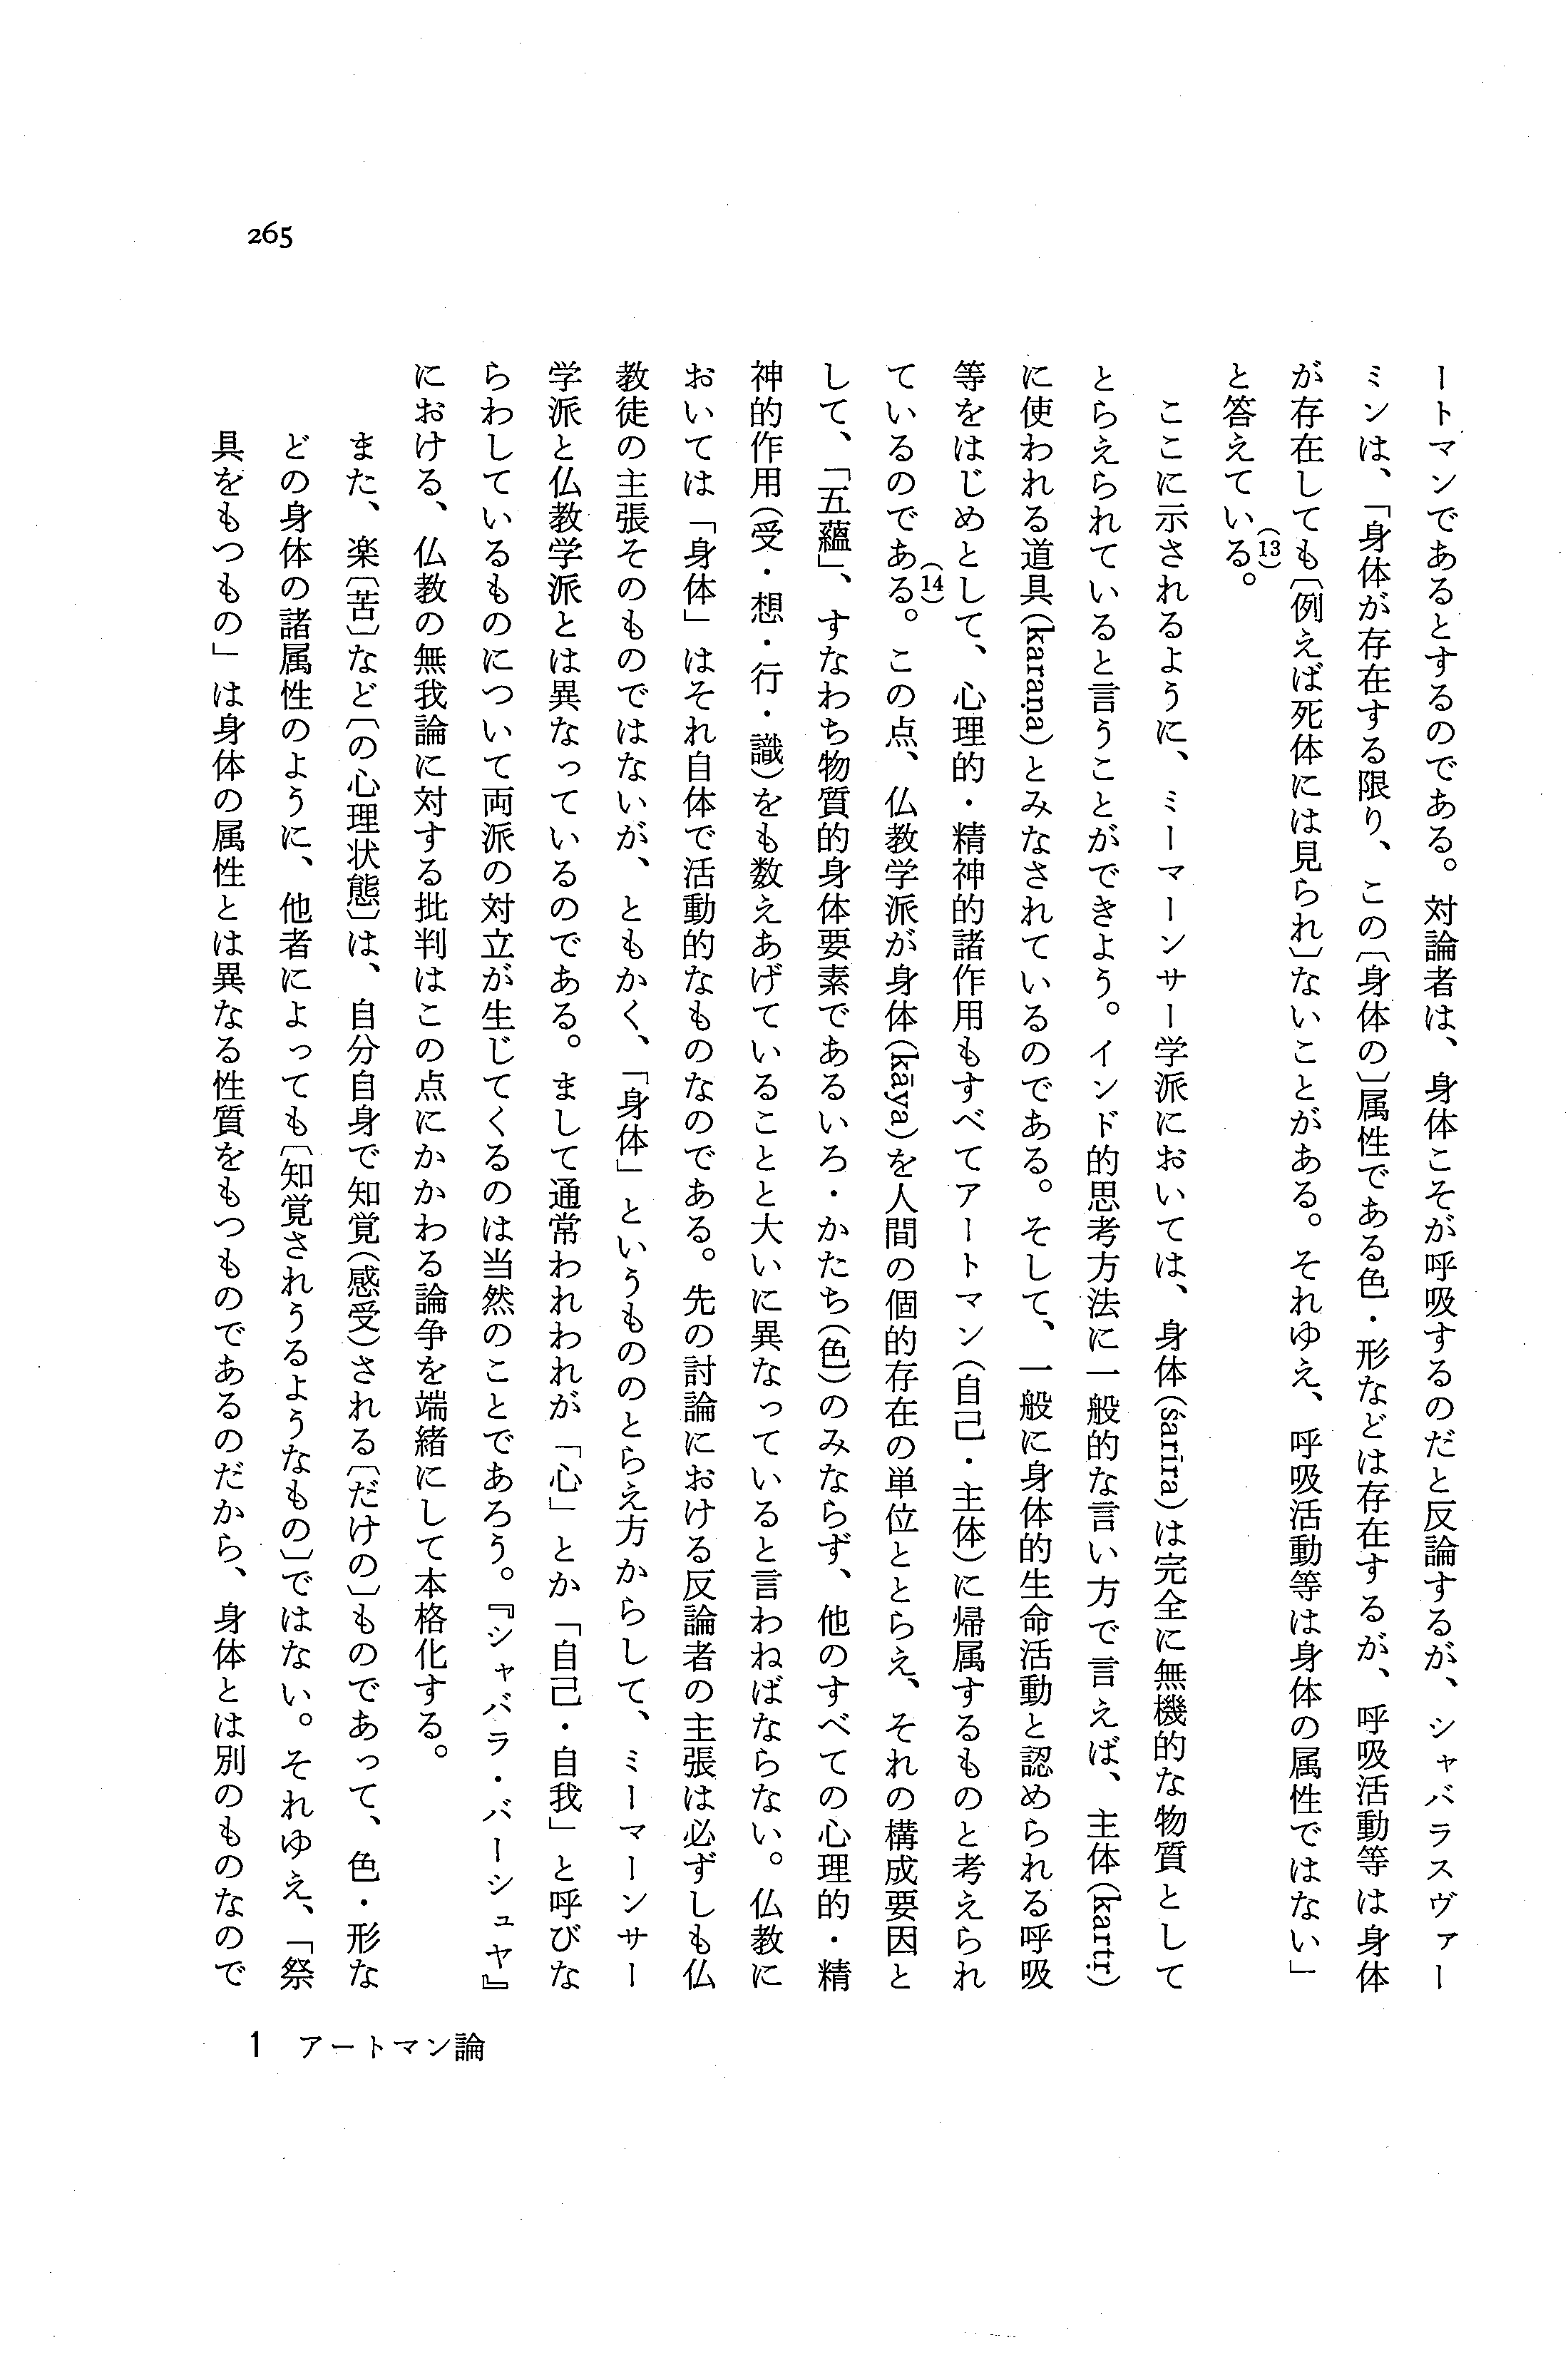 ートマンであるとするのである。対論者は、身体こそが呼吸するのだと反論するが、シャバラスヴァー
ミンは、「身体が存在する限り、この〔身体の〕属性である色・形などは存在するが、呼吸活動等は身体
が存在しても〔例えば死体には見られ〕ないことがある。それゆえ、呼吸活動等は身体の属性ではない」
と答えている(13)。
ここに示されるように、ミーマーンサー学派においては、身体(śarīra)は完全に無機的な物質として
とらえられていると言うことができよう。インド的思考方法に一般的な言い方で言えば、主体(kartṛ)
に使われる道具(karaṇa)とみなされているのである。そして、一般に身体的生命活動と認められる呼吸
等をはじめとして、心理的・精神的諸作用もすべてアートマン(自己・主体)に帰属するものと考えられ
ているのである(14)。この点、仏教学派が身体(kāya)を人間の個的存在の単位ととらえ、それの構成要因と
して、「五蘊」、すなわち物質的身体要素であるいろ・かたち(色)のみならず、他のすべての心理的・精
神的作用(受・想・行・識)をも数えあげていることと大いに異なっていると言わねばならない。仏教に
おいては「身体」はそれ自体で活動的なものなのである。先の討論における反論者の主張は必ずしも仏
教徒の主張そのものではないが、ともかく、「身体」というもののとらえ方からして、ミーマーンサー
学派と仏教学派とは異なっているのである。まして通常われわれが「心」とか「自己・自我」と呼びな
らわしているものについて両派の対立が生じてくるのは当然のことであろう。『シャバラ・バーシュヤ』
における、仏教の無我論に対する批判はこの点にかかわる論争を端緒にして本格化する。
また、楽〔苦〕など〔の心理状態〕は、自分自身で知覚(感受)される〔だけの〕ものであって、色・形な
どの身体の諸属性のように、他者によっても〔知覚されうるようなもの〕ではない。それゆえ、「祭
具をもつもの」は身体の属性とは異なる性質をもつものであるのだから、身体とは別のものなので
265
1 アートマン論